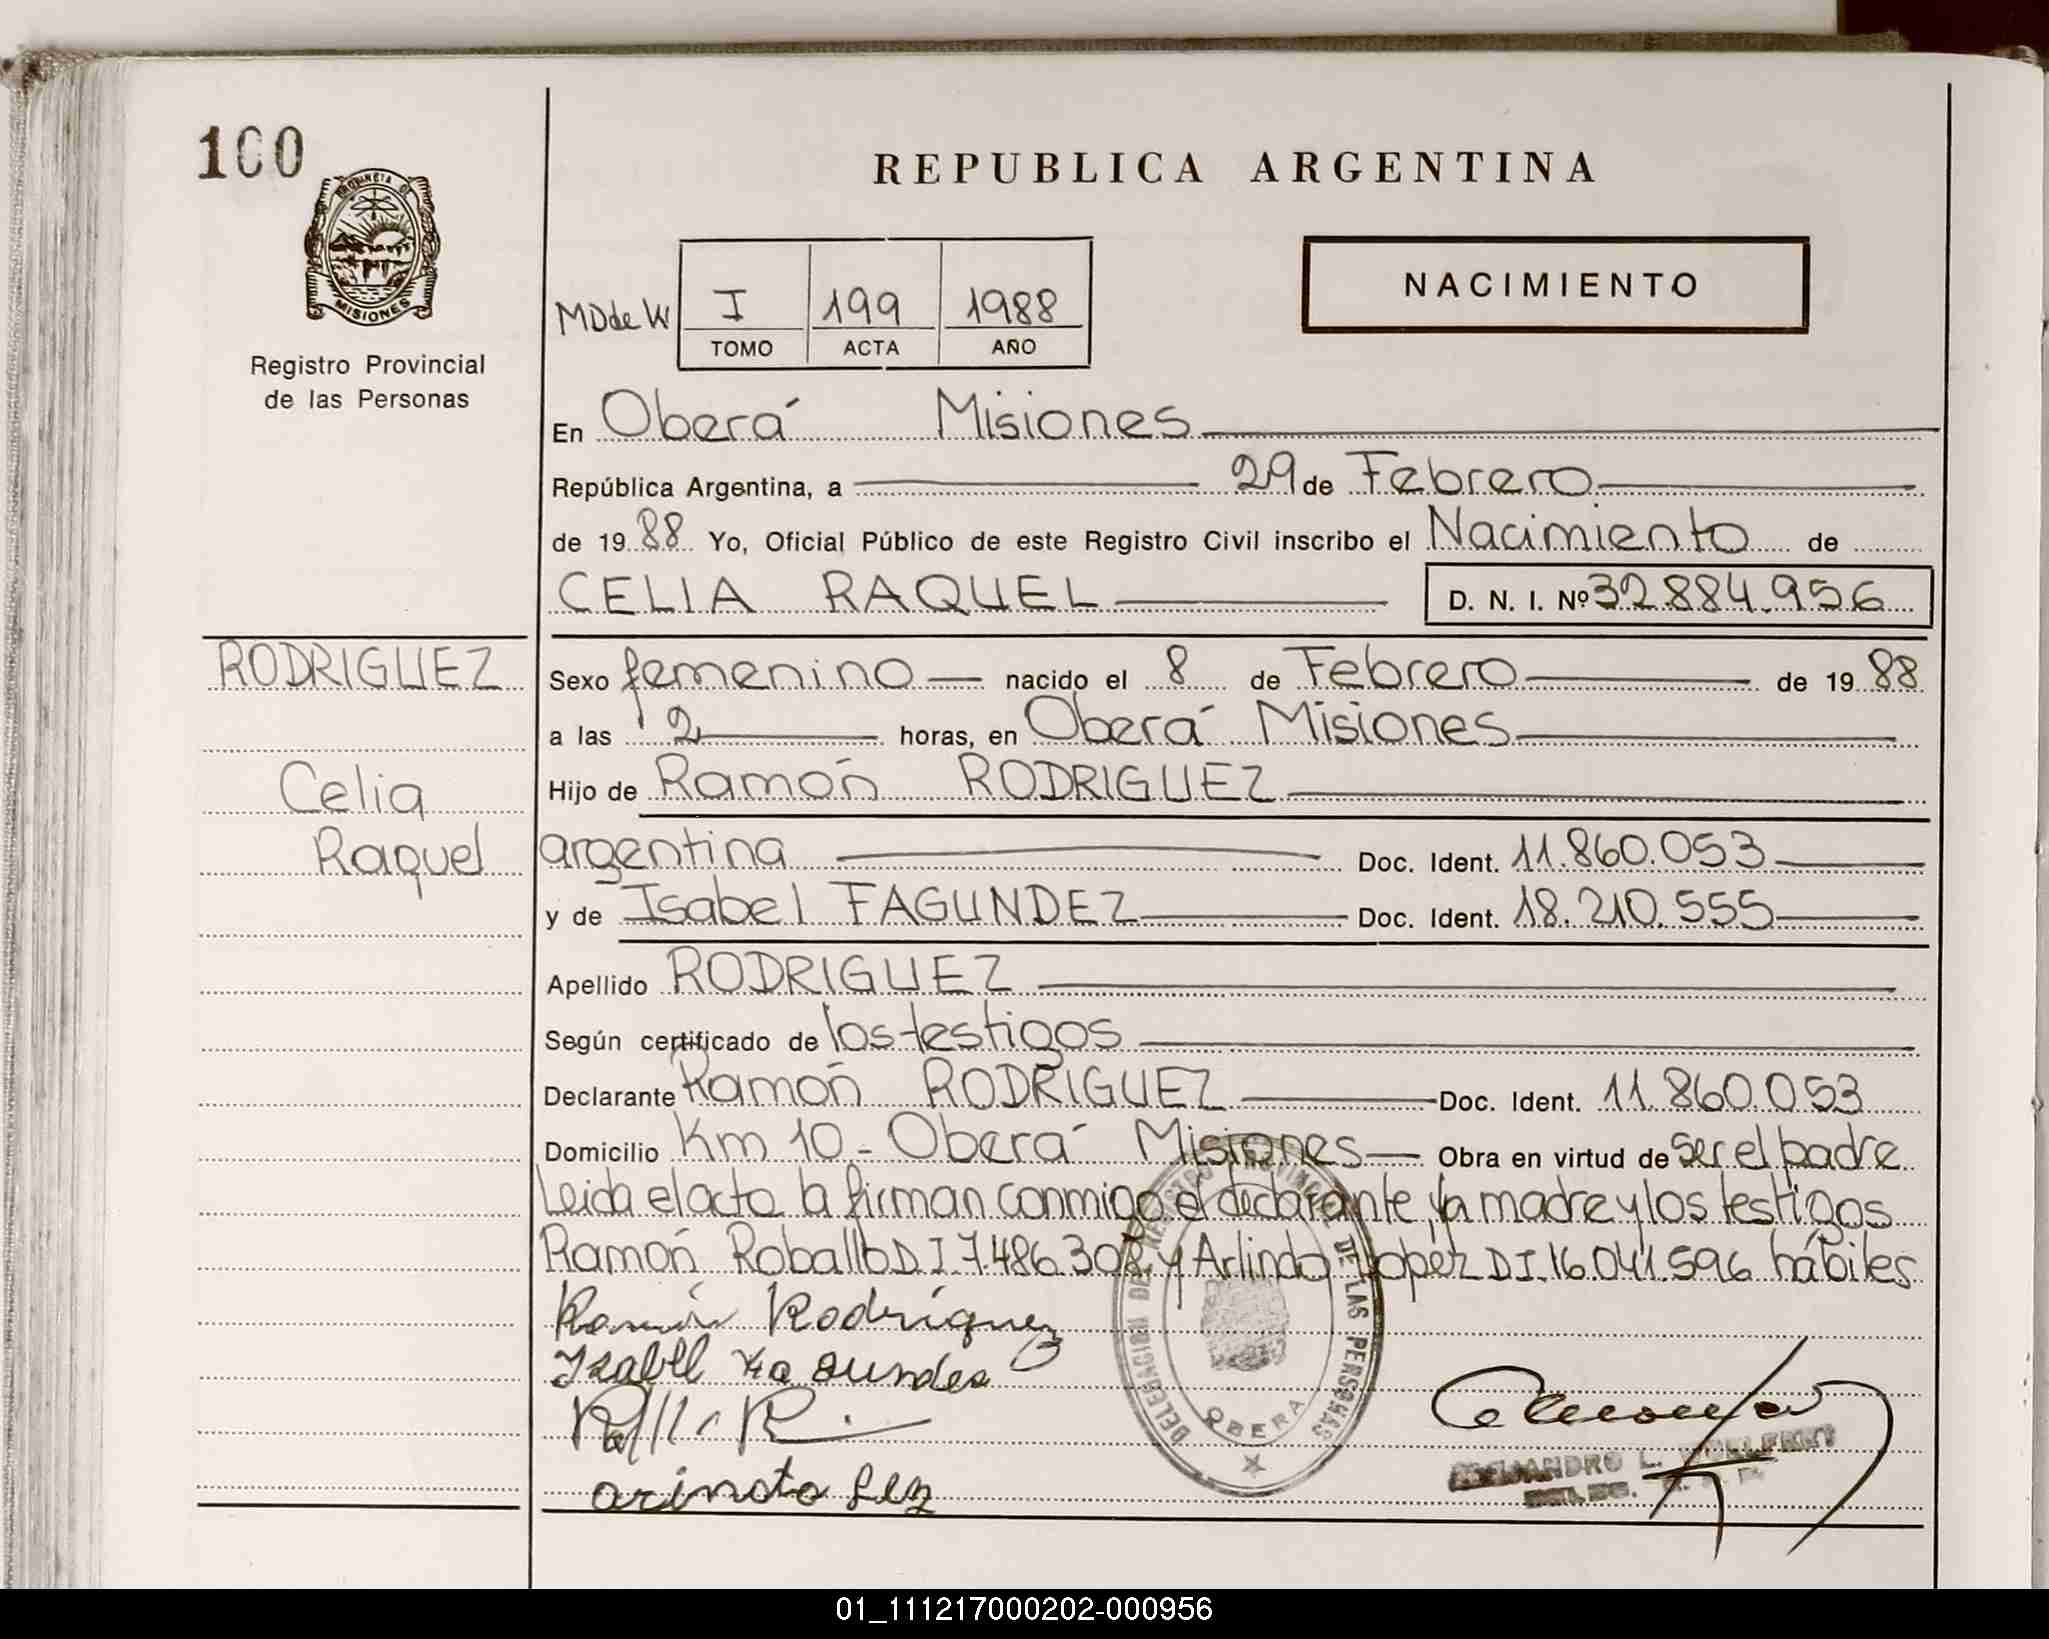 100
REPUBLICA ARGENTINA
PROVINCIA DE
MISIONES
Registro Provincial
de las Personas
MD de W
I 199 1988
TOMO ACTA AÑO
NACIMIENTO
En Oberá Misiones
República Argentina, a 29 de Febrero
de 1988 Yo, Oficial Público de este Registro Civil inscribo el Nacimiento de
CELIA RAQUEL D. N. I. Nº 32.884.956
RODRIGUEZ
Celia
Raquel
Sexo femenino nacido el 8 de Febrero de 1988
a las 2 horas, en Oberá Misiones
Hijo de Ramón RODRIGUEZ
argentina Doc. Ident. 11.860.053
y de Isabel FAGUNDEZ Doc. Ident. 18.210.555
Apellido RODRIGUEZ
Según certificado de los testigos
Declarante Ramón RODRIGUEZ Doc. Ident. 11.860.053
Domicilio Km 10 - Oberá Misiones Obra en virtud de ser el padre
Leida el acta la firman conmigo el declarante, la madre y los testigos
Ramón Roballo D I 7.486.308 y Arlindo Lopez D I. 16.041.596 hábiles
Ramón Rodríguez
DELEGACION DEL REGISTRO PROVINCIAL DE LAS PERSONAS
OBERA
ALEJANDRO L.
01_111217000202-000956